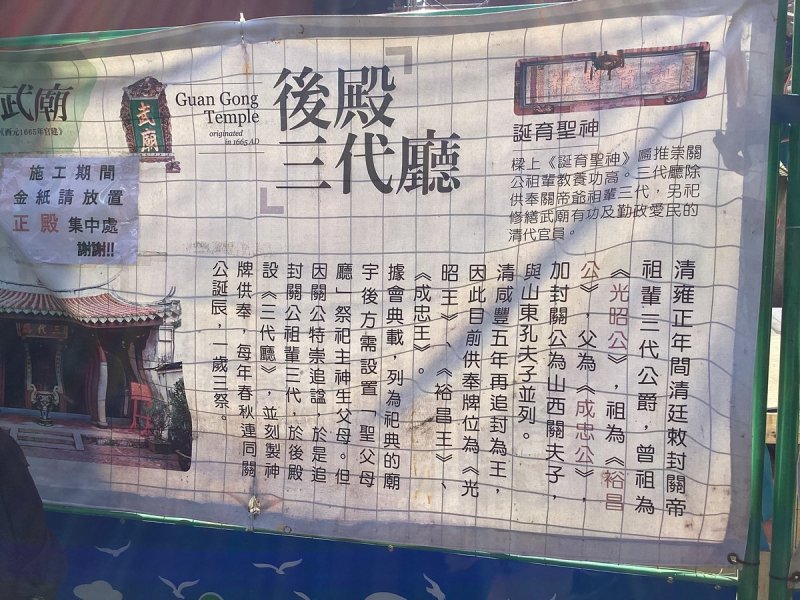 武廟
《西元1665年官建》
武廟
Guan Gong
Temple
originated
in 1665 AD
後殿
三代廳
施工期間
金紙請放置
正殿 集中處
謝謝!!
誕育聖神
樑上《誕育聖神》匾推崇關
公祖輩教養功高。三代廳除
供奉關帝爺祖輩三代，另祀
修繕武廟有功及勤政愛民的
清代官員。
清雍正年間清廷敕封關帝
祖輩三代公爵，曾祖為
《光昭公》，祖為《裕昌
公》，父為《成忠公》，
加封關公為山西關夫子，
與山東孔夫子並列。
清咸豐五年再追封為王，
因此目前供奉牌位為《光
昭王》、《裕昌王》、
《成忠王》。
據會典載，列為祀典的廟
宇後方需設置「聖父母
廳」祭祀主神生父母。但
因關公特崇追諡，於是追
封關公祖輩三代，於後殿
設《三代廳》，並刻製神
牌供奉，每年春秋連同關
公誕辰，一歲三祭。